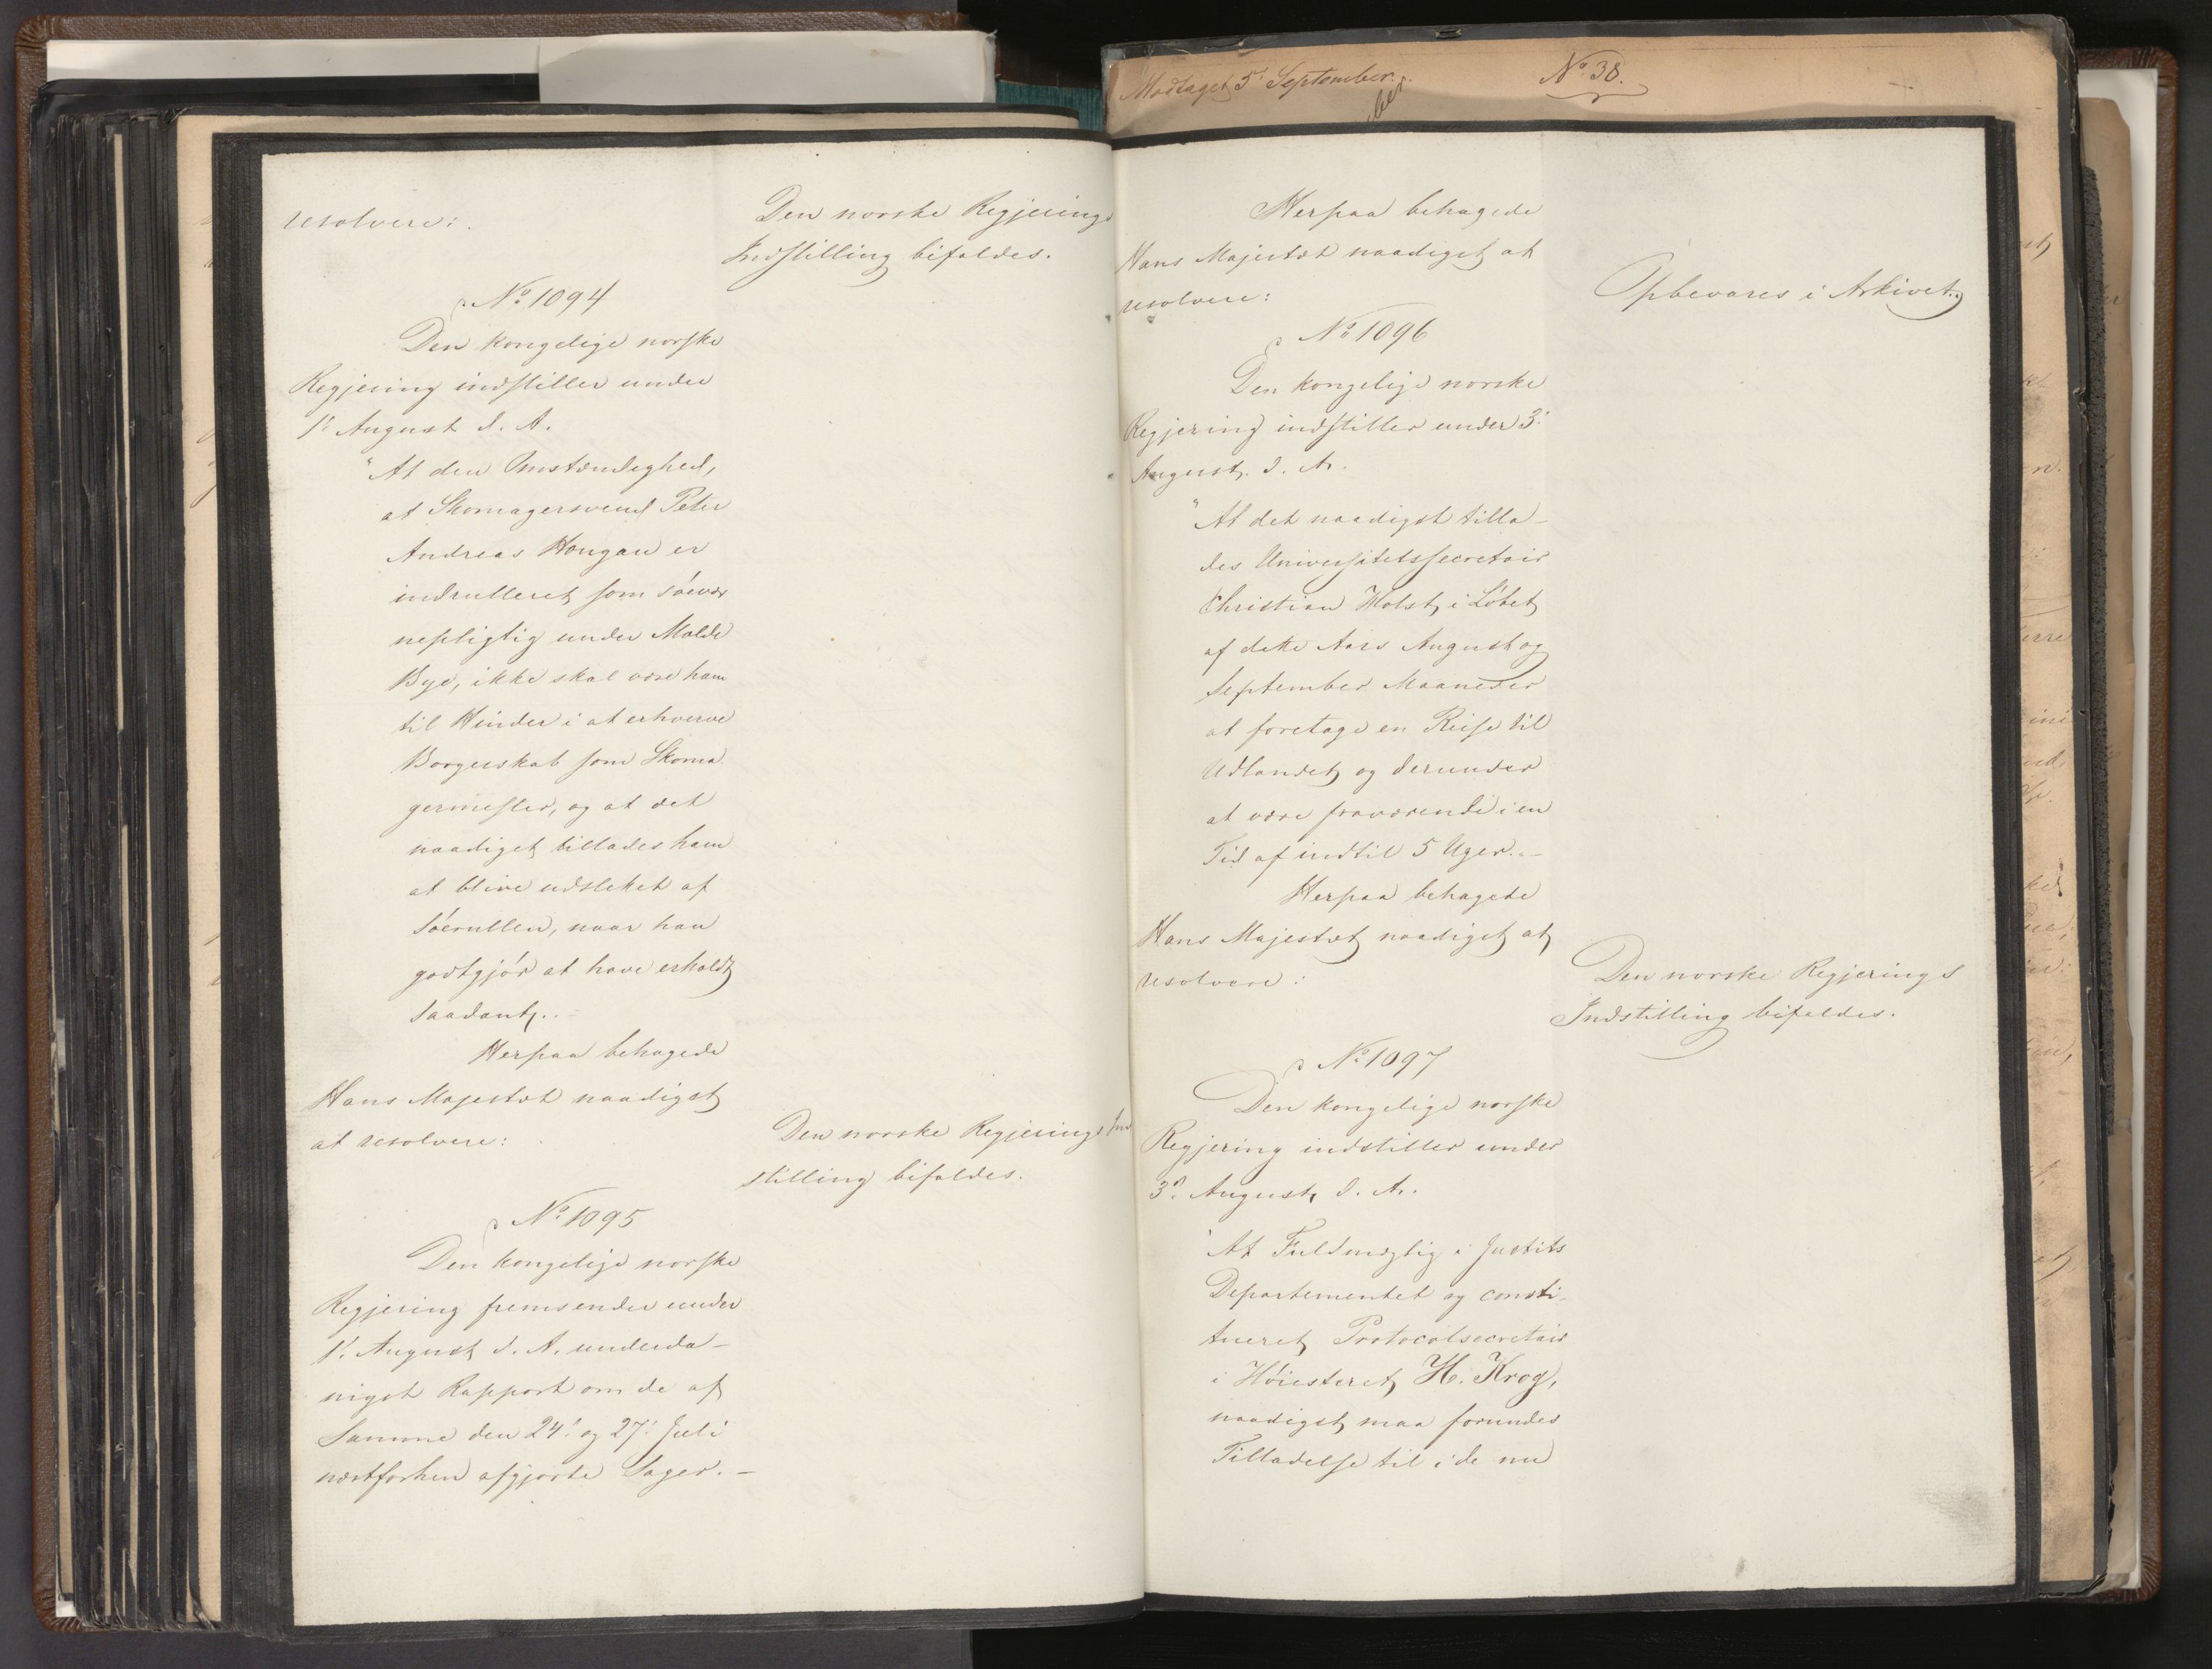 resolvere:
Den norske Regjerings
Indstilling bifaldes.
No 1094
Den kongelige norske
Regjering indstiller under
1' August d. A.
"At den Omstændighed,
at Skomagersvend Peter
Andreas Hougan er
indrulleret som søevær
nepligtig under Molde
Bye, ikke skal være ham
til Hinder i at erhverve
Borgerskab som Skoma
germester, og at det
naadigst tillades ham
at blive udslettet af
Søerullen, naar han
godtgjør at have erholdt
saadant.
Herpaa behagede
Hans Majestæt naadigst
at resolvere:
Den norske Regjerings Ind
stilling bifaldes.
No 1095
Den kongelige norske
Regjering fremsender under
1' August d. A. underda-
nigst Rapport om de af
Samme den 24' og 27' Juli
næstforhen afgjorte Sager. -
Modtaget 5' September.
No 38.
ber
Herpaa behagede
Hans Majestæt naadigst at
resolvere:
Opbevares i Arkivet.
No 1096
Den kongelige norske
Regjering indstiller under 3'
August d. A.
"At det naadigst tilla-
des Universitetssecretair
Christian Holst, i Løbet
af dette Aars August og
September Maaneder
at foretage en Reise til
Udlandet og derunder
at være fraværende i en
Tid af indtil 5 Uger. -
Herpaa behagede
Hans Majestæt naadigst at
resolvere:
Den norske Regjerings
Indstilling bifaldes.
No 1097
Den kongelige norske
Regjering indstiller under
3' August d. A.
"At Fuldmægtig i Justits
Departementet og consti-
tueret Protocolsecretair
i Høiesteret, H. Krog,
naadigst maa forundes
Tilladelse til i de nu